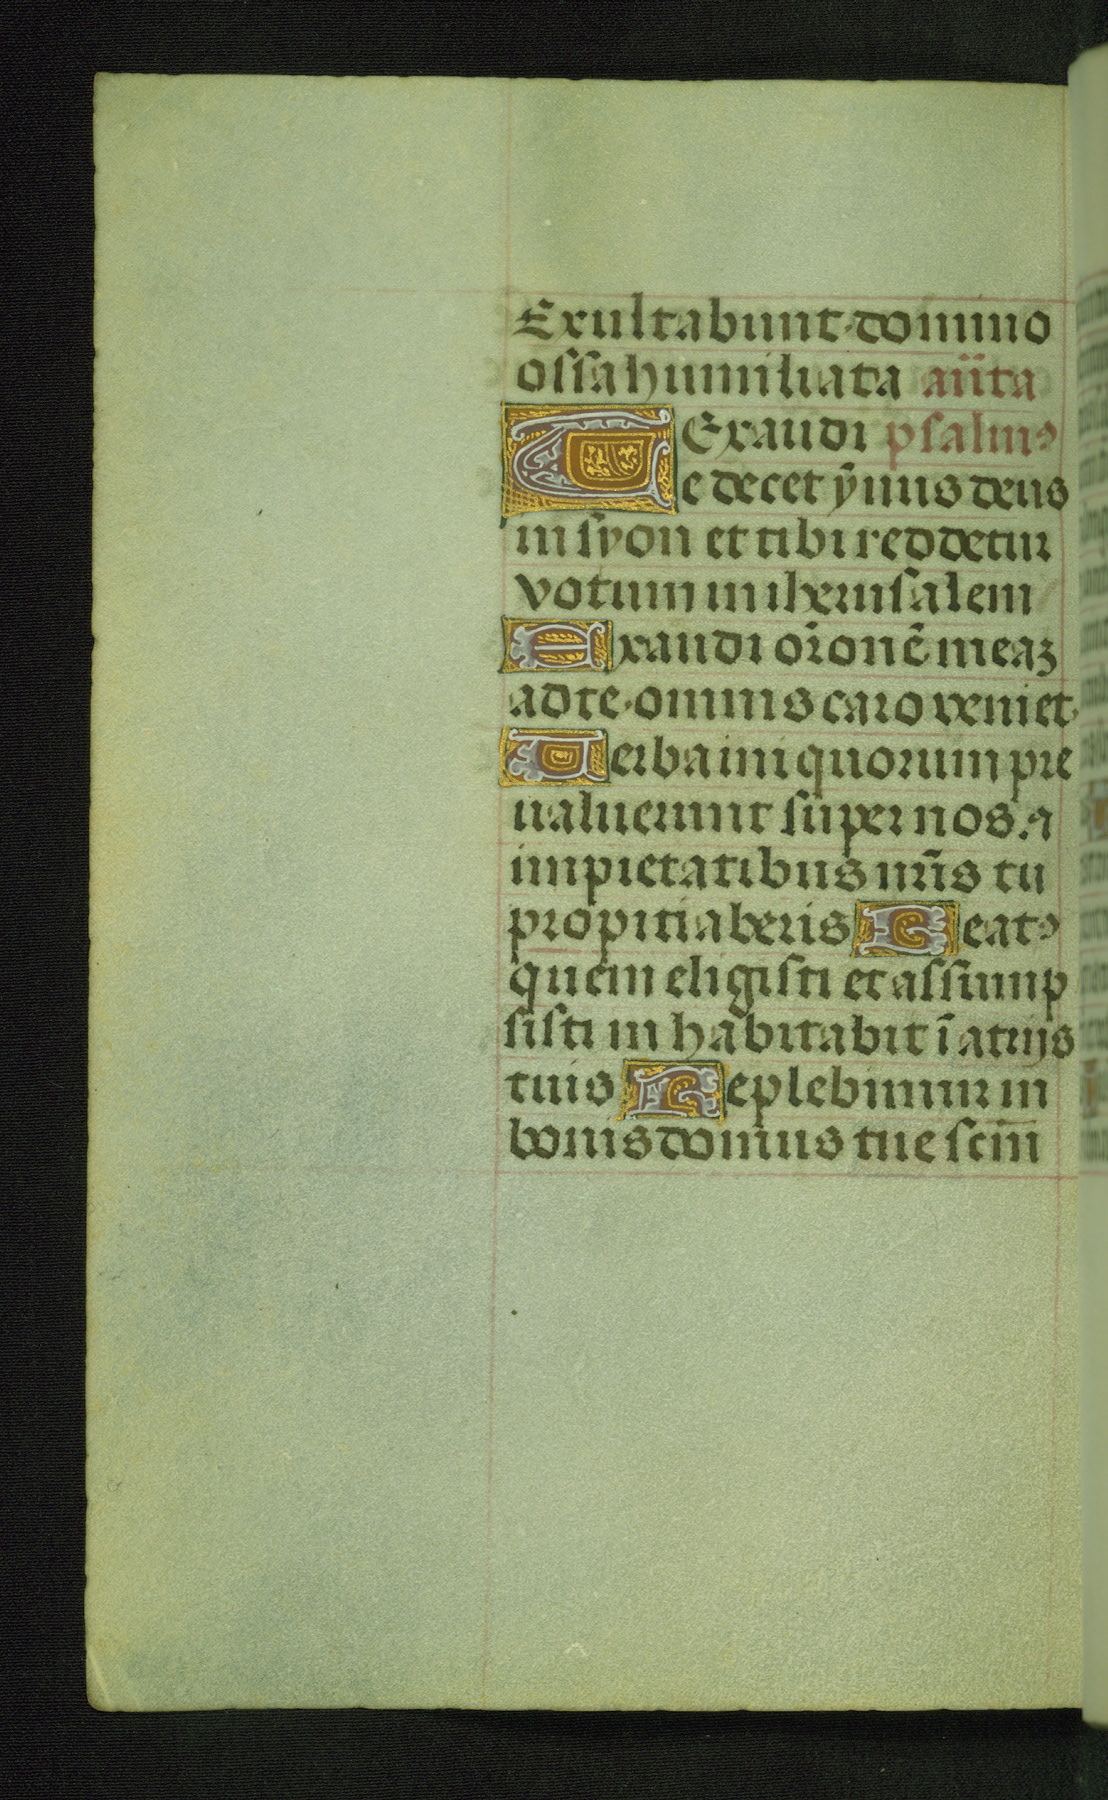 Exultabunt domino
ossa humiliata an̄ta
Exaudi psalmꝰ
Te decet ym̄nus deus
in syon et tibi reddetur
votum in iherusalem
Exaudi or̄onē meaꝫ
ad te omnis caro veniet
Uerba iniquorum pre
ualuerunt super nos. ⁊
impietatibus nr̄is tu
propitiaberis Beatꝰ
quem eligisti et assump
sisti inhabitabit ī atrijs
tuis Replebimur in
bonis domus tue sc̄m